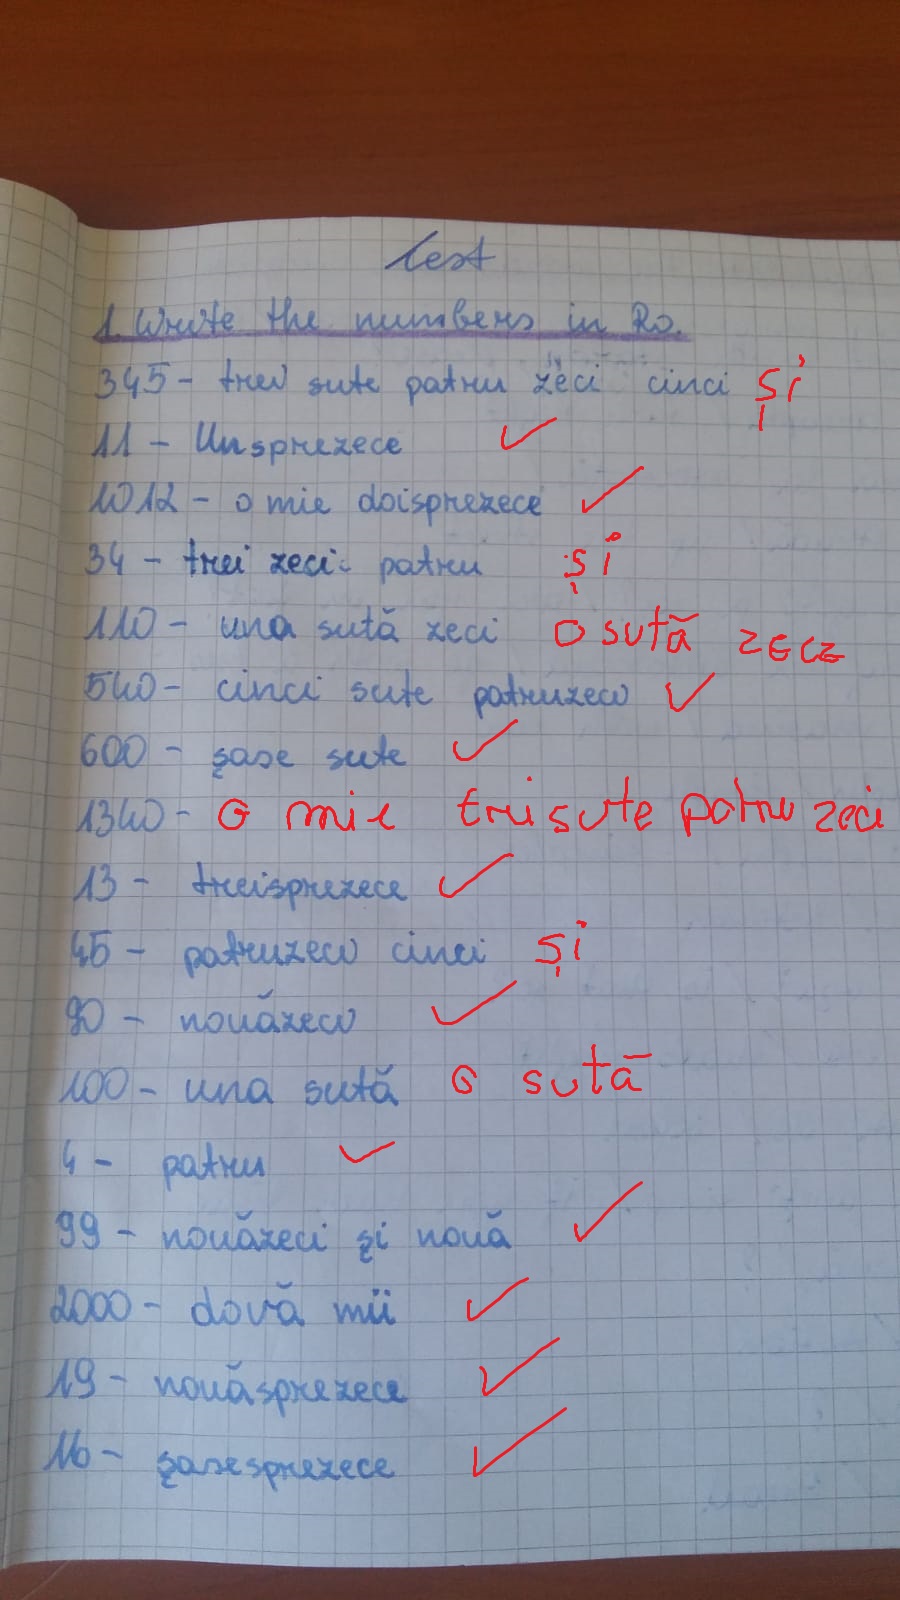 Test
1. Write the numbers in Ro.
345 - trei sute patru zeci cinci și
11 - Unsprezece
1012 - o mie doisprezece
34 - trei zeci patru și
110 - una sută zeci o sută zece
540 - cinci sute patruzeci
600 - șase sute
1340 - o mie trei sute patru zeci
13 - treisprezece
45 - patruzeci cinci și
90 - nouăzeci
100 - una sută o sută
4 - patru
99 - nouăzeci și nouă
2000 - două mii
19 - nouăsprezece
16 - șasesprezece